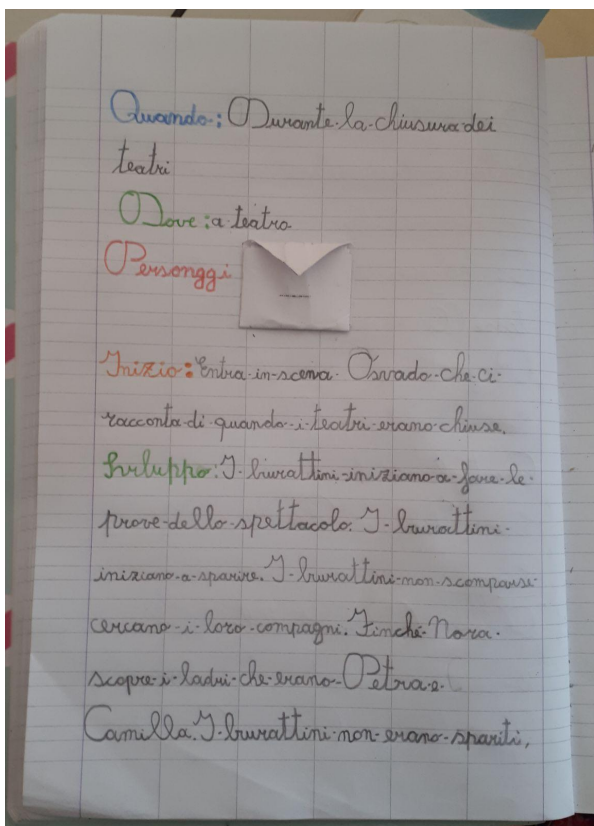 Quando: Durante la chiusura dei
teatri
Dove: a teatro
Personggi
Inizio: Entra in scena Osvado che ci
racconta di quando i teatri erano chiuse.
Sviluppo: I burattini iniziano a fare le
prove dello spettacolo. I burattini
iniziano a sparire. I burattini non scomparsi
cercano i loro compagni. Finché Nora
scopre i ladri che erano Petra e
Camilla. I burattini non erano spariti,